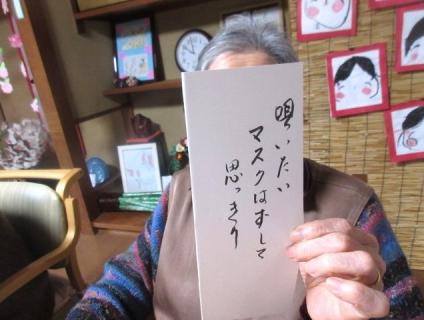 唄いたい
マスクはずして
思っきり